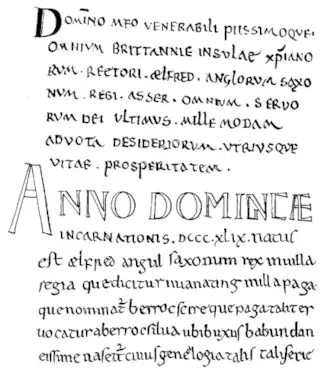 DOMINO MEO VENERABILI PIISSIMOQUE.
OMNIUM BRITTANNIE INSULAE XP̄IANO
RUM. RECTORI. ÆLFRED. ANGLORUM SAXO
NUM. REGI. ASSER. OMNIUM. SERUO
RUM DEI ULTIMUS. MILLE MODAM
ADUOTA DESIDERIORUM. UTRIUSQUE
UITAE. PROSPERITATEM.
ANNO DOMINICÆ
INCARNATIONIS. DCCC.XLIX. NATUS
est ælfred angul saxonum rex in uilla
regia que dicitur uuanating in illa paga
que nominat̄ berrocscire que paga taliter
uocatur a berroc silua ubi buxus habundan
tissime nascit̄ cuius genelogia tali serie